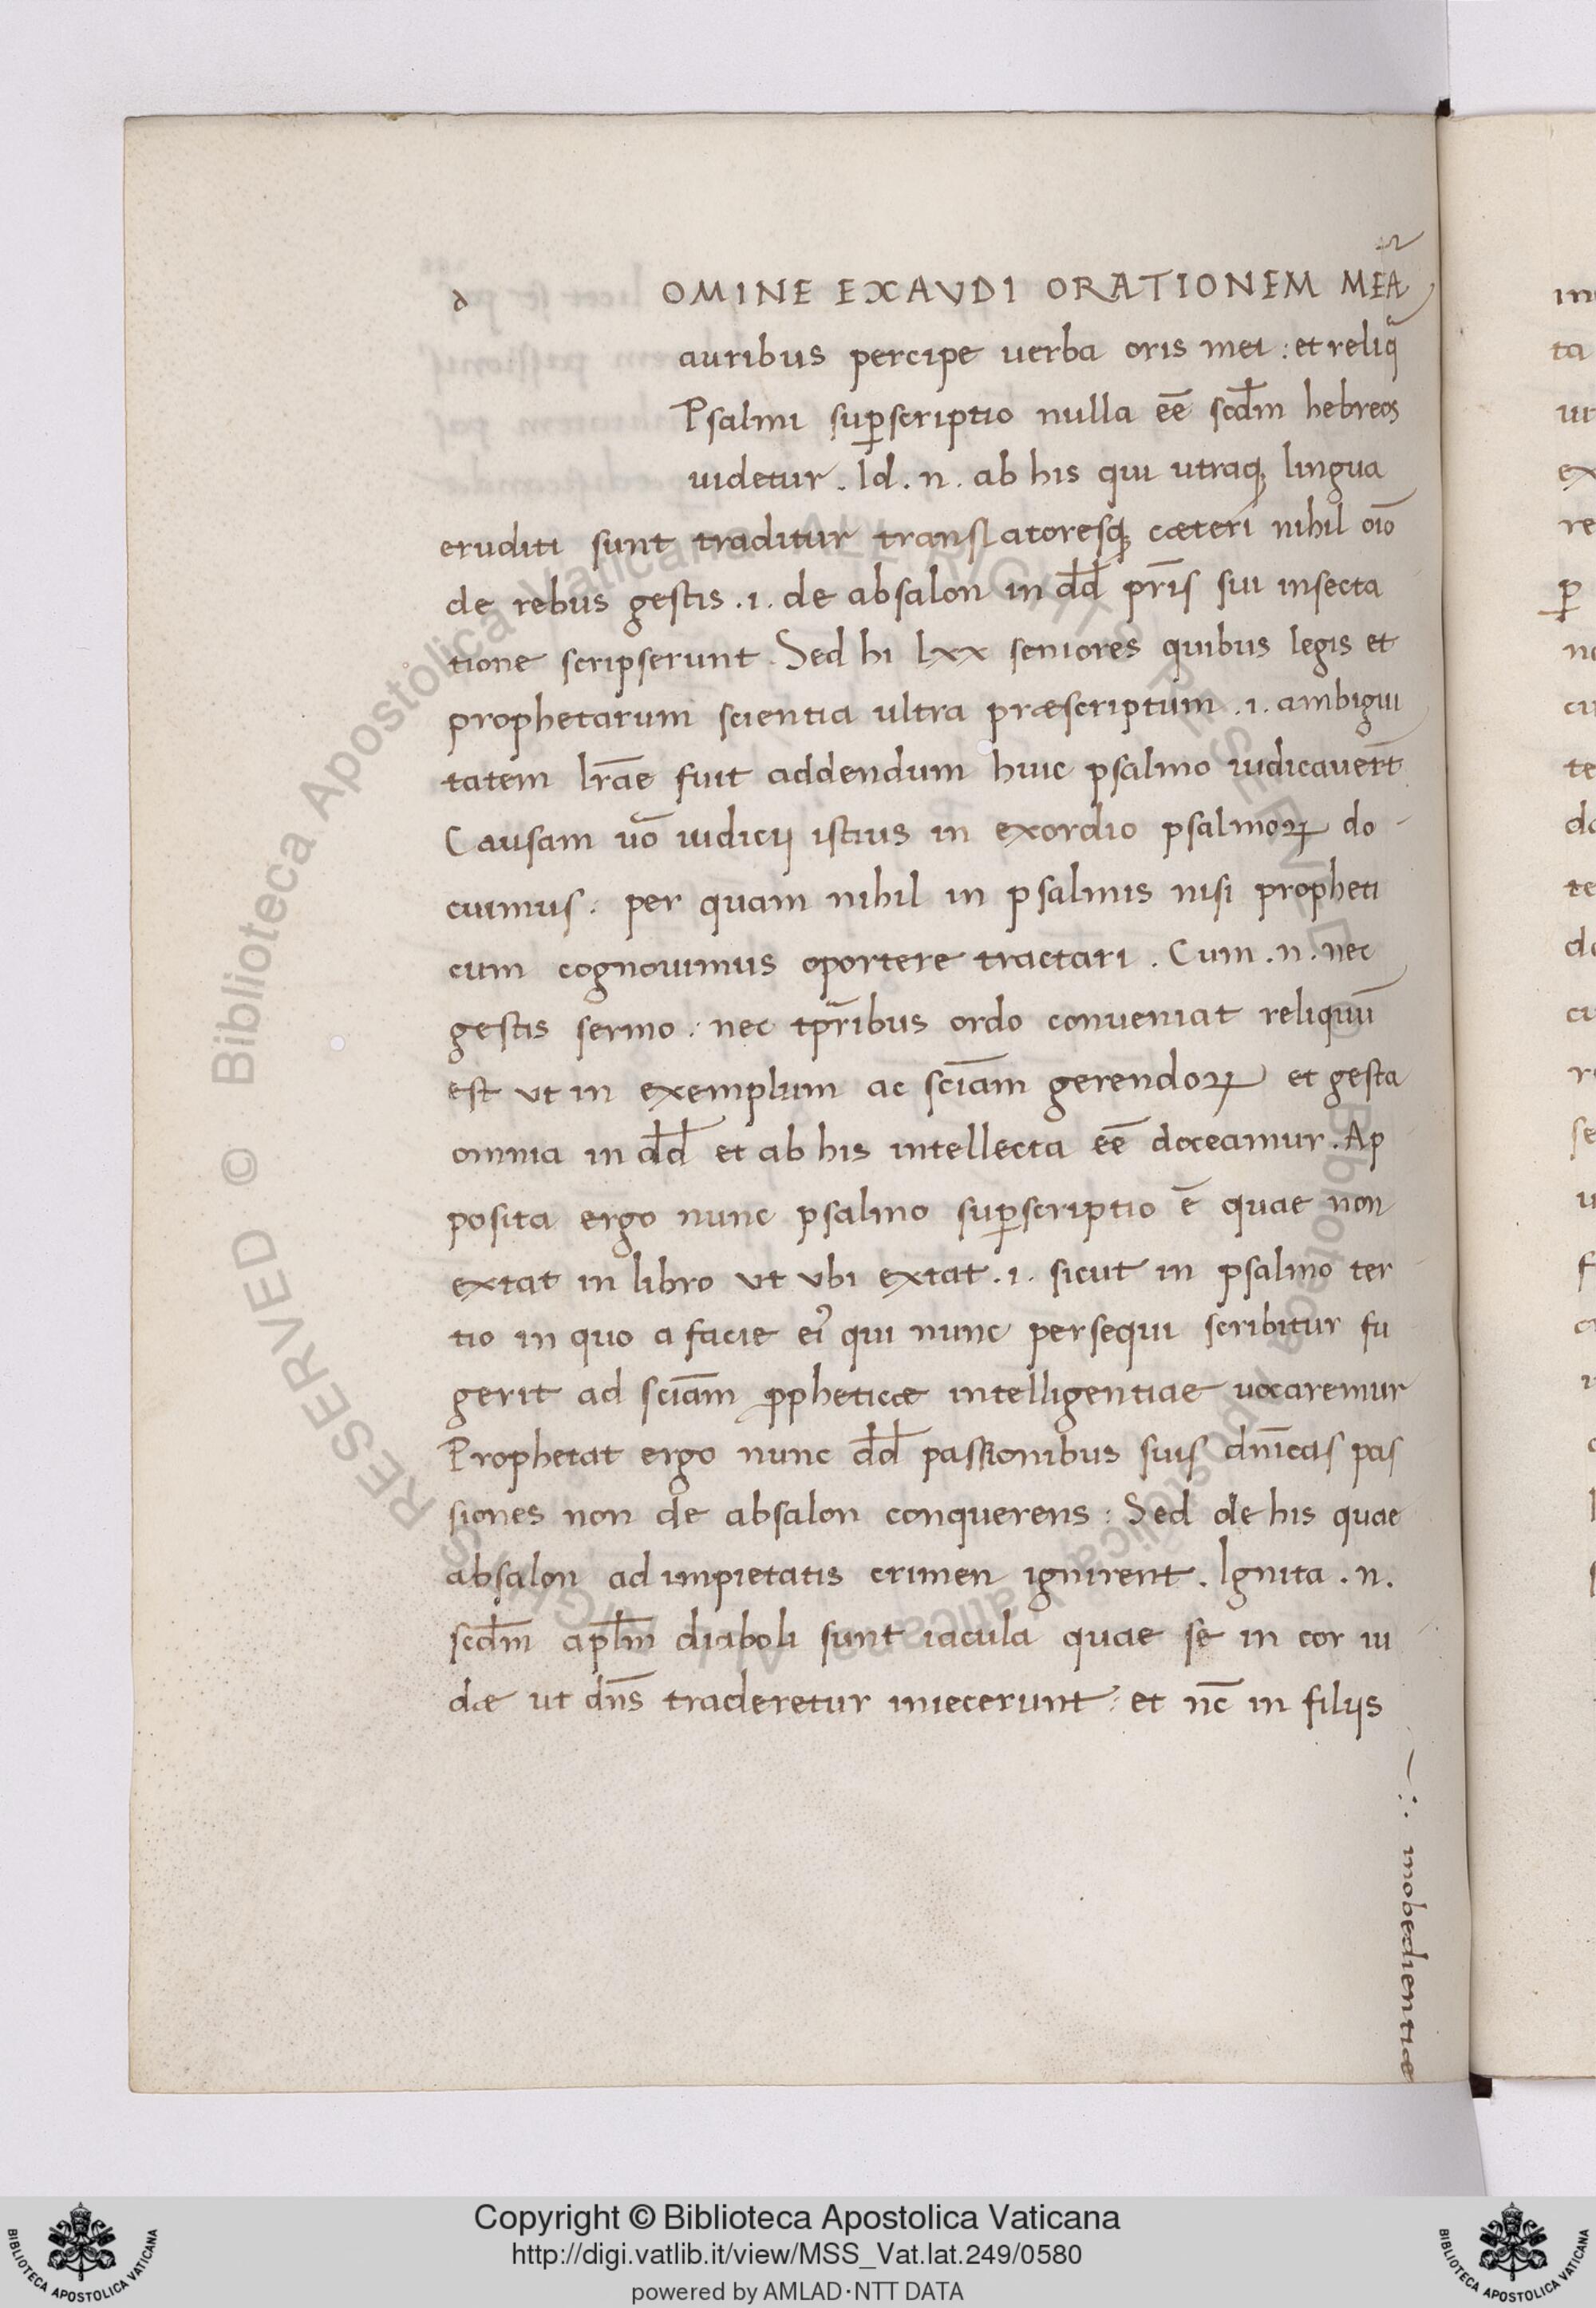 d OMINE EXAVDI ORATIONEM MEÃ
auribus percipe uerba oris mei : et reliq̃
Psalmi suꝑscriptio nulla eē̄ scd̄m hebreos
uidetur . Id . n . ab his qui utraqꝫ lingua
eruditi sunt traditur translatoresqꝫ cæteri nihil oīo
de rebus gestis . i . de absalon in dd̄ pr̄is sui insecta
tione scripserunt . Sed hi lxx seniores quibus legis et
prophetarum scientia ultra præscriptum . i . ambigui
tatem lr̄ae fuit addendum huic psalmo iudicauer̄t
Causam uō iudicij istius in exordio psalmoꝝ do-
cuimus : per quam nihil in psalmis nisi propheti
cum cognouimus oportere tractari . Cum . n . nec
gestis sermo : nec tp̄ribus ordo conueniat reliquū
est vt in exemplum ac scīam gerendoꝝ et gesta
omnia in dd̄ et ab his intellecta eē̄ doceamur . Ap
posita ergo nunc psalmo suꝑscriptio ē quae non
extat in libro vt vbi extat . i . sicut in psalmo ter
tio in quo a facie eiꝰ qui nunc persequi scribitur fu
gerit ad scīam ꝓpheticæ intelligentiae uocaremur
Prophetat ergo nunc dd̄ passionibus suis dn̄icas pas
siones non de absalon conquerens : Sed de his quae
absalon ad impietatis crimen ignirent . Ignita . n .
scd̄m apl̄m diaboli sunt iacula quae se in cor iu
dæ ut dn̄s traderetur iniecerunt : et nc̄ in filijs
inobedientiæ
in
ta
ut
ex
re
ꝑ
no
te
da
te
cu
se
Copyright © Biblioteca Apostolica Vaticana
http://digi.vatlib.it/view/MSS_Vat.lat.249/0580
powered by AMLAD·NTT DATA
BIBLIOTECA APOSTOLICA VATICANA
BIBLIOTECA APOSTOLICA VATICANA